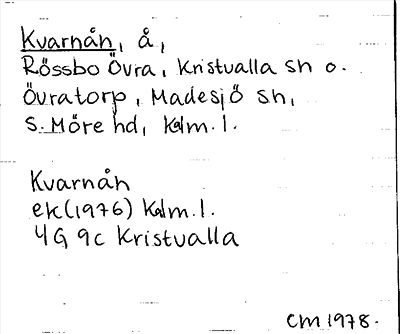 Kvarnån, å,
Rössbo Övra, Kristvalla sn o.
Övratorp, Madesjö sn,
S. Möre hd, Kalm. l.
Kvarnån
ek (1976) Kalm. l.
4G 9c Kristvalla
CM 1978.